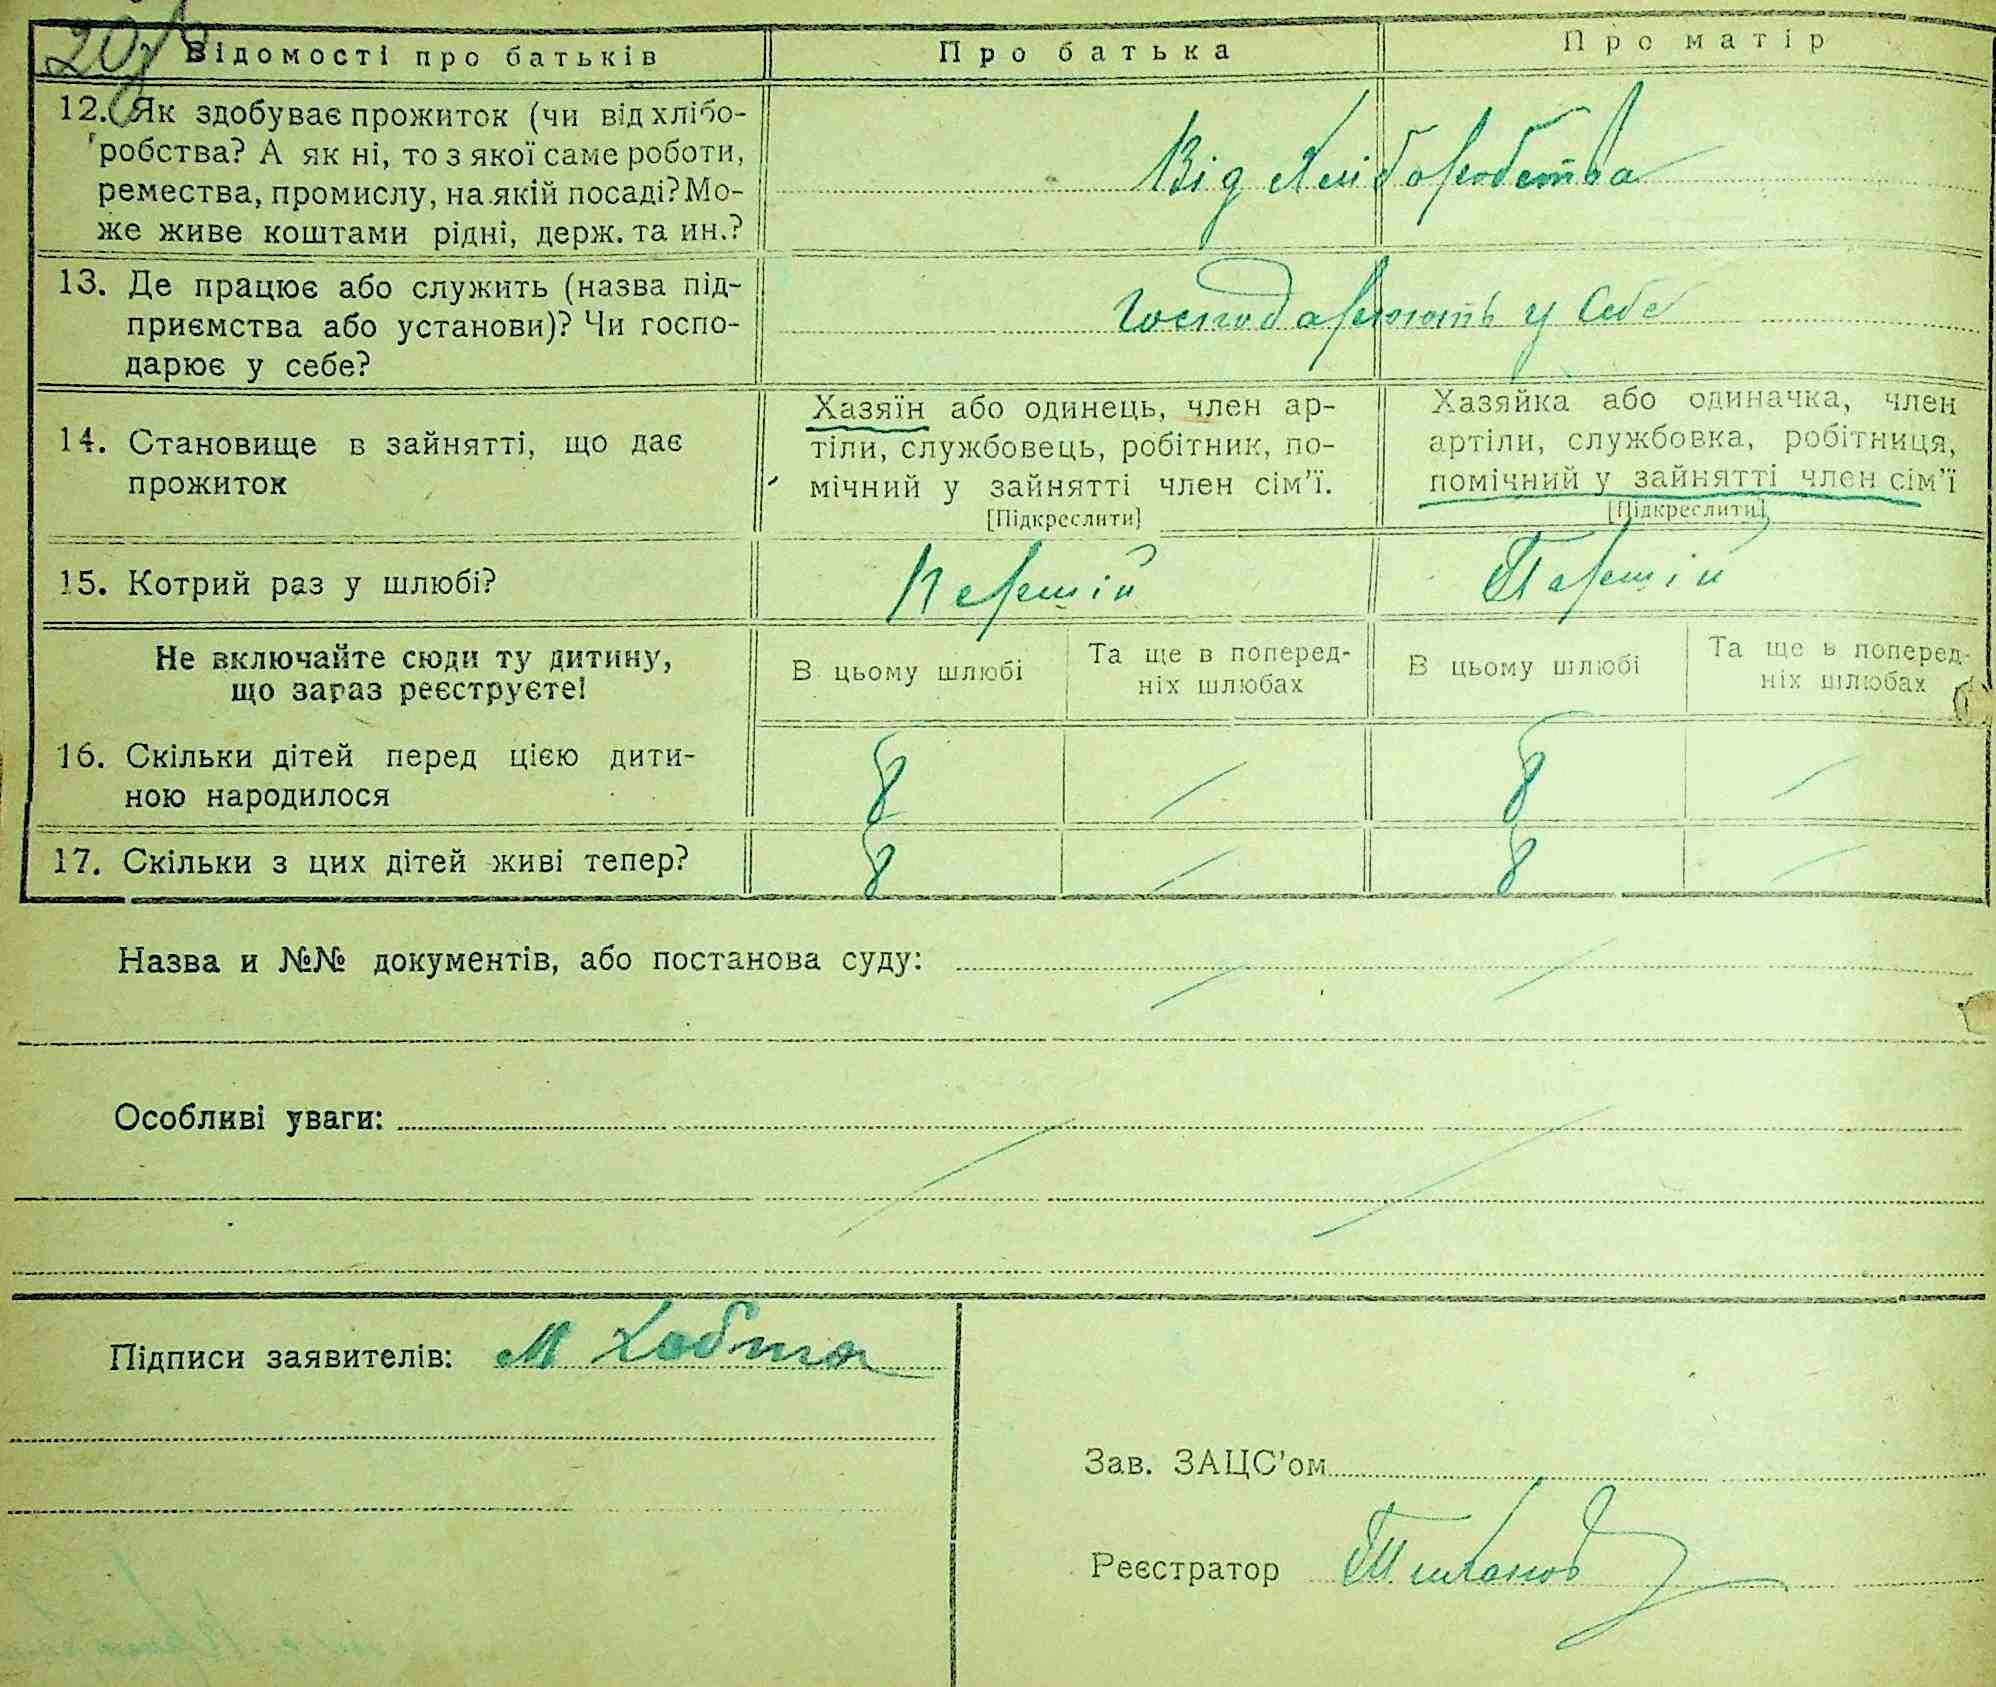 Відомості про батьків
Про батька
Про матір
12. Як здобуває прожиток (чи від хлібо-
робства? А як ні, то з якої саме роботи,
ремества, промислу, на якій посаді? Мо-
же живе коштами рідні, держ. та ин.?
Від хліборобства
13. Де працює або служить (назва під-
приємства або установи)? Чи госпо-
дарює у себе?
Господарюють у себе
14. Становище в зайнятті, що дає
прожиток
Хазяїн або одинець, член ар-
тіли, службовець, робітник, по-
мічний у зайнятті член сім'ї.
[Підкреслити]
Хазяйка або одиначка, член
артіли, службовка, робітниця,
помічний у зайнятті член сім'ї
[Підкреслити]
15. Котрий раз у шлюбі?
Першій
Першій
Не включайте сюди ту дитину,
що зараз реєструєте!
В цьому шлюбі
Та ще в поперед-
ніх шлюбах
В цьому шлюбі
Та ще в поперед-
ніх шлюбах
16. Скільки дітей перед цією дити-
ною народилося
8 — 8 —
17. Скільки з цих дітей живі тепер?
8 — 8 —
Назва и №№ документів, або постанова суду:
Особливі уваги:
Підписи заявителів: М
Зав. ЗАЦС'ом
Реєстратор